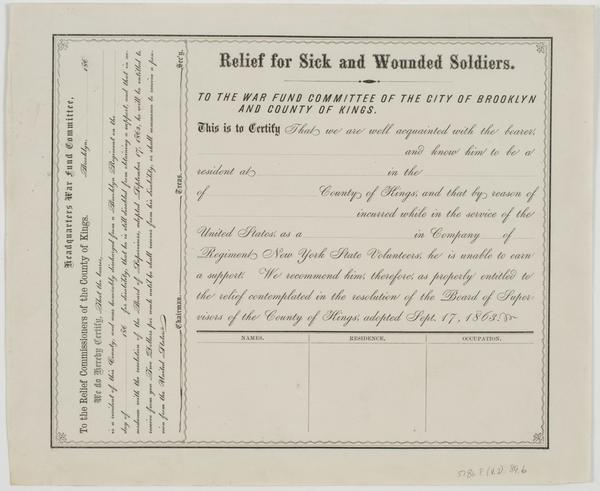 Headquarters War Fund Committee,
Brooklyn, 186
To the Relief Commissioners of the County of Kings.
We do Hereby Certify, That the bearer,
is a resident of this County, and was honorably discharged from a Brooklyn Regiment on the
day of 186 for disability, that he is still disabled from obtaining a support, and that in ac-
cordance with the resolution of the Board of Supervisors, adopted September 17, 1863, he will be entitled to
receive from you Two Dollars per week until he shall recover from his disability, or shall commence to receive a pen-
sion from the United States.
Chairman. Treas. Sec'y.
Relief for Sick and Wounded Soldiers.
TO THE WAR FUND COMMITTEE OF THE CITY OF BROOKLYN
AND COUNTY OF KINGS.
This is to Certify That we are well acquainted with the bearer,
and know him to be a
resident at in the
of County of Kings, and that by reason of
incurred while in the service of the
United States, as a in Company of
Regiment New York State Volunteers, he is unable to earn
a support. We recommend him, therefore, as properly entitled to
the relief contemplated in the resolution of the Board of Super-
visors of the County of Kings, adopted Sept. 17, 1863.
NAMES. RESIDENCE. OCCUPATION.